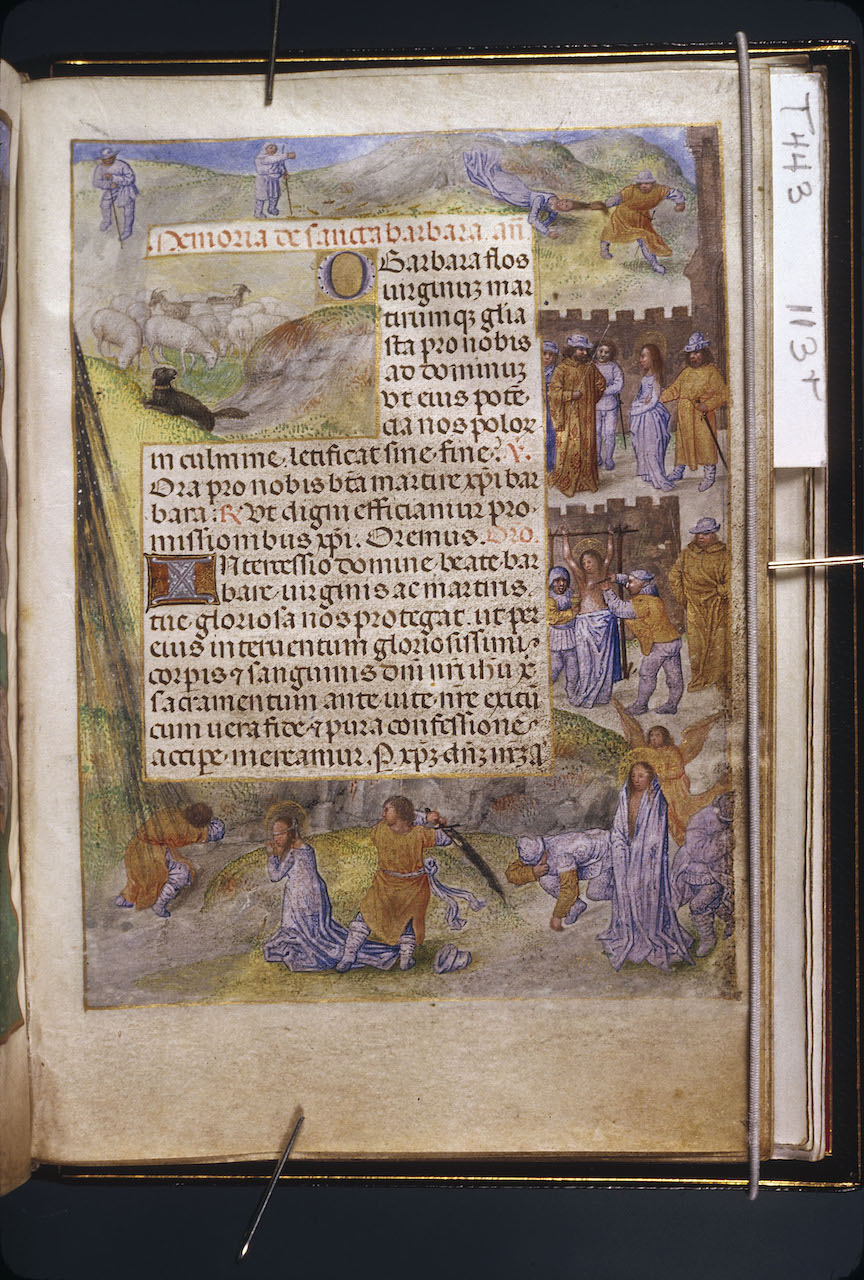 Memoria de sancta barbara. an̄
O Barbara flos
uirginuꝫ mar
tirum qꝫ glia
ista pro nobis
ad dominuꝫ
vt eius potē
cia nos polor
in culmine. letificat sine fine. V.
Ora pro nobis bt̄a martire xp̄i bar
bara. R Vt digni efficiamur pro
missionibus xp̄i. Oremus. Oro.
Intercessio domine beate bar
bare. uirginis ac martiris.
tue gloriosa nos protegat. ut per
eius interuentum gloriosissimi
corpis ⁊ sanguinis dn̄i nr̄i ih̄u x̄
sacramentum ante uite. nr̄e exitū
cum uera fide ⁊ pura confessione.
accipe. mereamur. P. xp̄ꝫ dn̄ꝫ nr̄ꝫ q̄
T443
113r